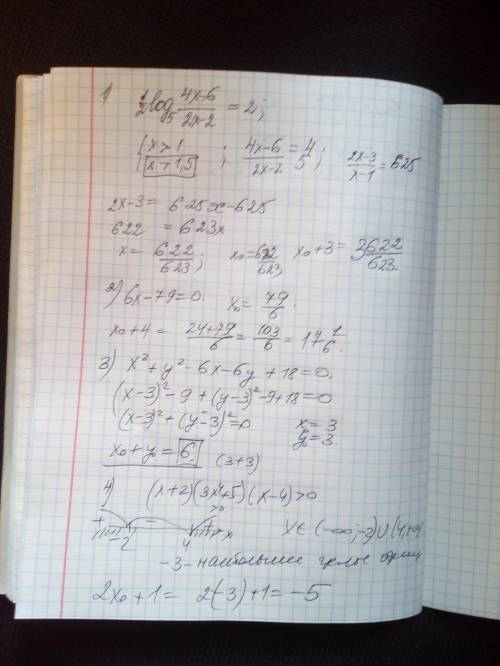 1) ½log₅ (4x-6)/(2x-2) = 2;
{ x > 1 x > 1,5 ; (4x-6)/(2x-2) = 4/5 ; (2x-3)/(x-1) = 625
2x-3 = 625x-625
622 = 623x
x = 622/623; x₀ = 622/623; x₀+3 = 3 622/623.
2) 6x-79=0. x₀ = 79/6
x₀+4 = (24+79)/6 = 103/6 = 17 1/6.
3) x²+y²-6x-6y+18=0.
(x-3)²-9+(y-3)²-9+18=0
(x-3)²+(y-3)²=0 x=3
y=3.
x₀+y₀ = 6. (3+3)
4) (x+2)(3x⁴+5)(x-4)>0
>0
+ - + x
-2 4 x∈(-∞;-2)∪(4;+∞)
-3- наибольшее целое отриц
2x₀+1= 2(-3)+1=-5